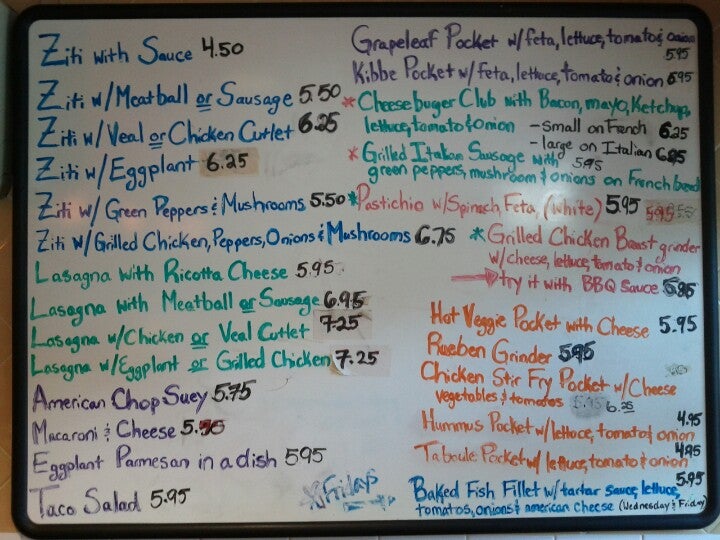 Ziti with Sauce 4.50
Ziti w/Meatball or Sausage 5.50
Ziti w/Veal or Chicken Cutlet 6.25
Ziti w/Eggplant 6.25
Ziti w/Green Peppers & Mushrooms 5.50
Ziti w/Grilled Chicken, Peppers, Onions & Mushrooms 6.75
Lasagna with Ricotta Cheese 5.95
Lasagna with Meatball or Sausage 6.95
Lasagna w/Chicken or Veal Cutlet 7.25
Lasagna w/Eggplant or Grilled Chicken 7.25
American Chop Suey 5.75
Macaroni & Cheese
Eggplant Parmesan in a dish 5.95
Taco Salad 5.95
Fridays
Grapeleaf Pocket w/feta, lettuce, tomato & onion
5.95
Kibbe Pocket w/feta, lettuce, tomato & onion 6.95
* Cheesebuger Club with Bacon, mayo, Ketchup,
lettuce, tomato & onion - small on French 6.25
- large on Italian 6.85
* Grilled Italian Sausage with 5.95
green peppers, mushroom & onions on French bread
* Pastichio w/Spinach, Feta, (white) 5.95 5.95
* Grilled Chicken Breast grinder
w/cheese, lettuce, tomato & onion
try it with BBQ sauce
Hot Veggie Pocket with Cheese 5.95
Rueben Grinder 5.95
Chicken Stir Fry Pocket w/Cheese
vegetables & tomatoes 5.95 6.25
4.95
Hummus Pocket w/lettuce, tomato & onion
4.95
Taboule Pocket w/lettuce, tomato & onion
5.95
Baked Fish Fillet w/tartar sauce, lettuce,
tomatos, onions & american cheese (Wednesday & Friday)